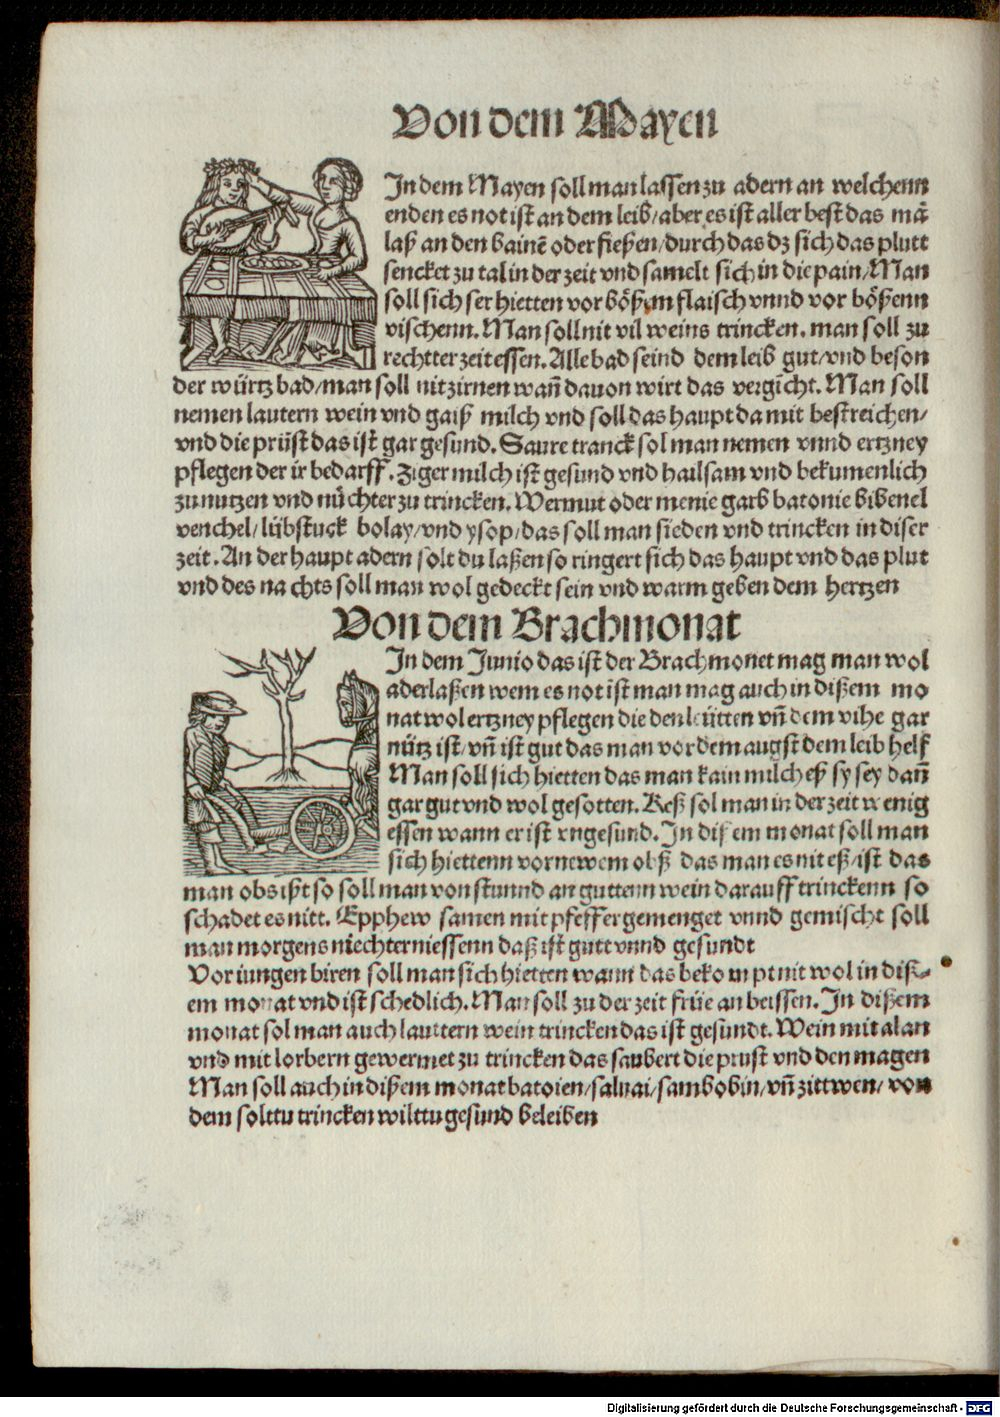 Von dem Mayen
In dem Mayen soll man lassen zu adern an welchenn
enden es not ist an dem leib/aber es ist aller best das mā
laß an den bainē oder fießen/durch das dz sich das plutt
sencket zu tal in der zeit vnd samelt sich in die pain/Man
soll sich ser hietten vor bößem flaisch vnnd vor bößenn
vischenn. Man soll nit vil weins trincken. man soll zu
rechtter zeit essen. Alle bad seind dem leib gut/vnd beson
der würtz bad/man soll nit zirnen wañ dauon wirt das vergicht. Man soll
nemen lautern wein vnd gaiß milch vnd soll das haupt da mit bestreichen/
vnd die prüst das ist gar gesund. Saure tranck sol man nemen vnnd ertzney
pflegen der ir bedarff. Ziger milch ist gesund vnd hailsam vnd bekumenlich
zu nutzen vnd nüchter zu trincken. Wermut oder menie garb batonie bibenel
venchel/lübstuck bolay/vnd ysop/das soll man sieden vnd trincken in diser
zeit. An der haupt adern solt du laßen so ringert sich das haupt vnd das plut
vnd des na chts soll man wol gedeckt sein vnd warm geben dem hertzen
Von dem Brachmonat
In dem Junio das ist der Brachmonet mag man wol
aderlaßen wem es not ist man mag auch in dißem mo
nat wol ertzney pflegen die den leütten vñ dem vihe gar
nütz ist/vñ ist gut das man vor dem augst dem leib helf
Man soll sich hietten das man kain milch eß sy sey dañ
gar gut vnd wol gesotten. Keß sol man in der zeit wenig
essen wann er ist vngesund. In disem monat soll man
sich hiettenn vor newem obß das man es nit eß/ist das
man obs ißt so soll man von stunnd an guttenn wein darauff trinckenn so
schadet es nitt. Epphew samen mit pfeffer gemenget vnnd gemischt soll
man morgens niechter niessenn daß ist gutt vnnd gesundt
Vor iungen biren soll man sich hietten wann das bekompt nit wol in diß-
em monat vnd ist schedlich. Man soll zu der zeit früe an beissen. In dißem
monat sol man auch lauttern wein trincken das ist gesundt. Wein mit alan
vnd mit lorbern gewermet zu trincken das saubert die prust vnd den magen
Man soll auch in dißem monat batoien/saluai/sambobin/vñ zittwen/ von
dem solttu trincken wilttu gesund beleiben
Digitalisierung gefördert durch die Deutsche Forschungsgemeinschaft - DFG